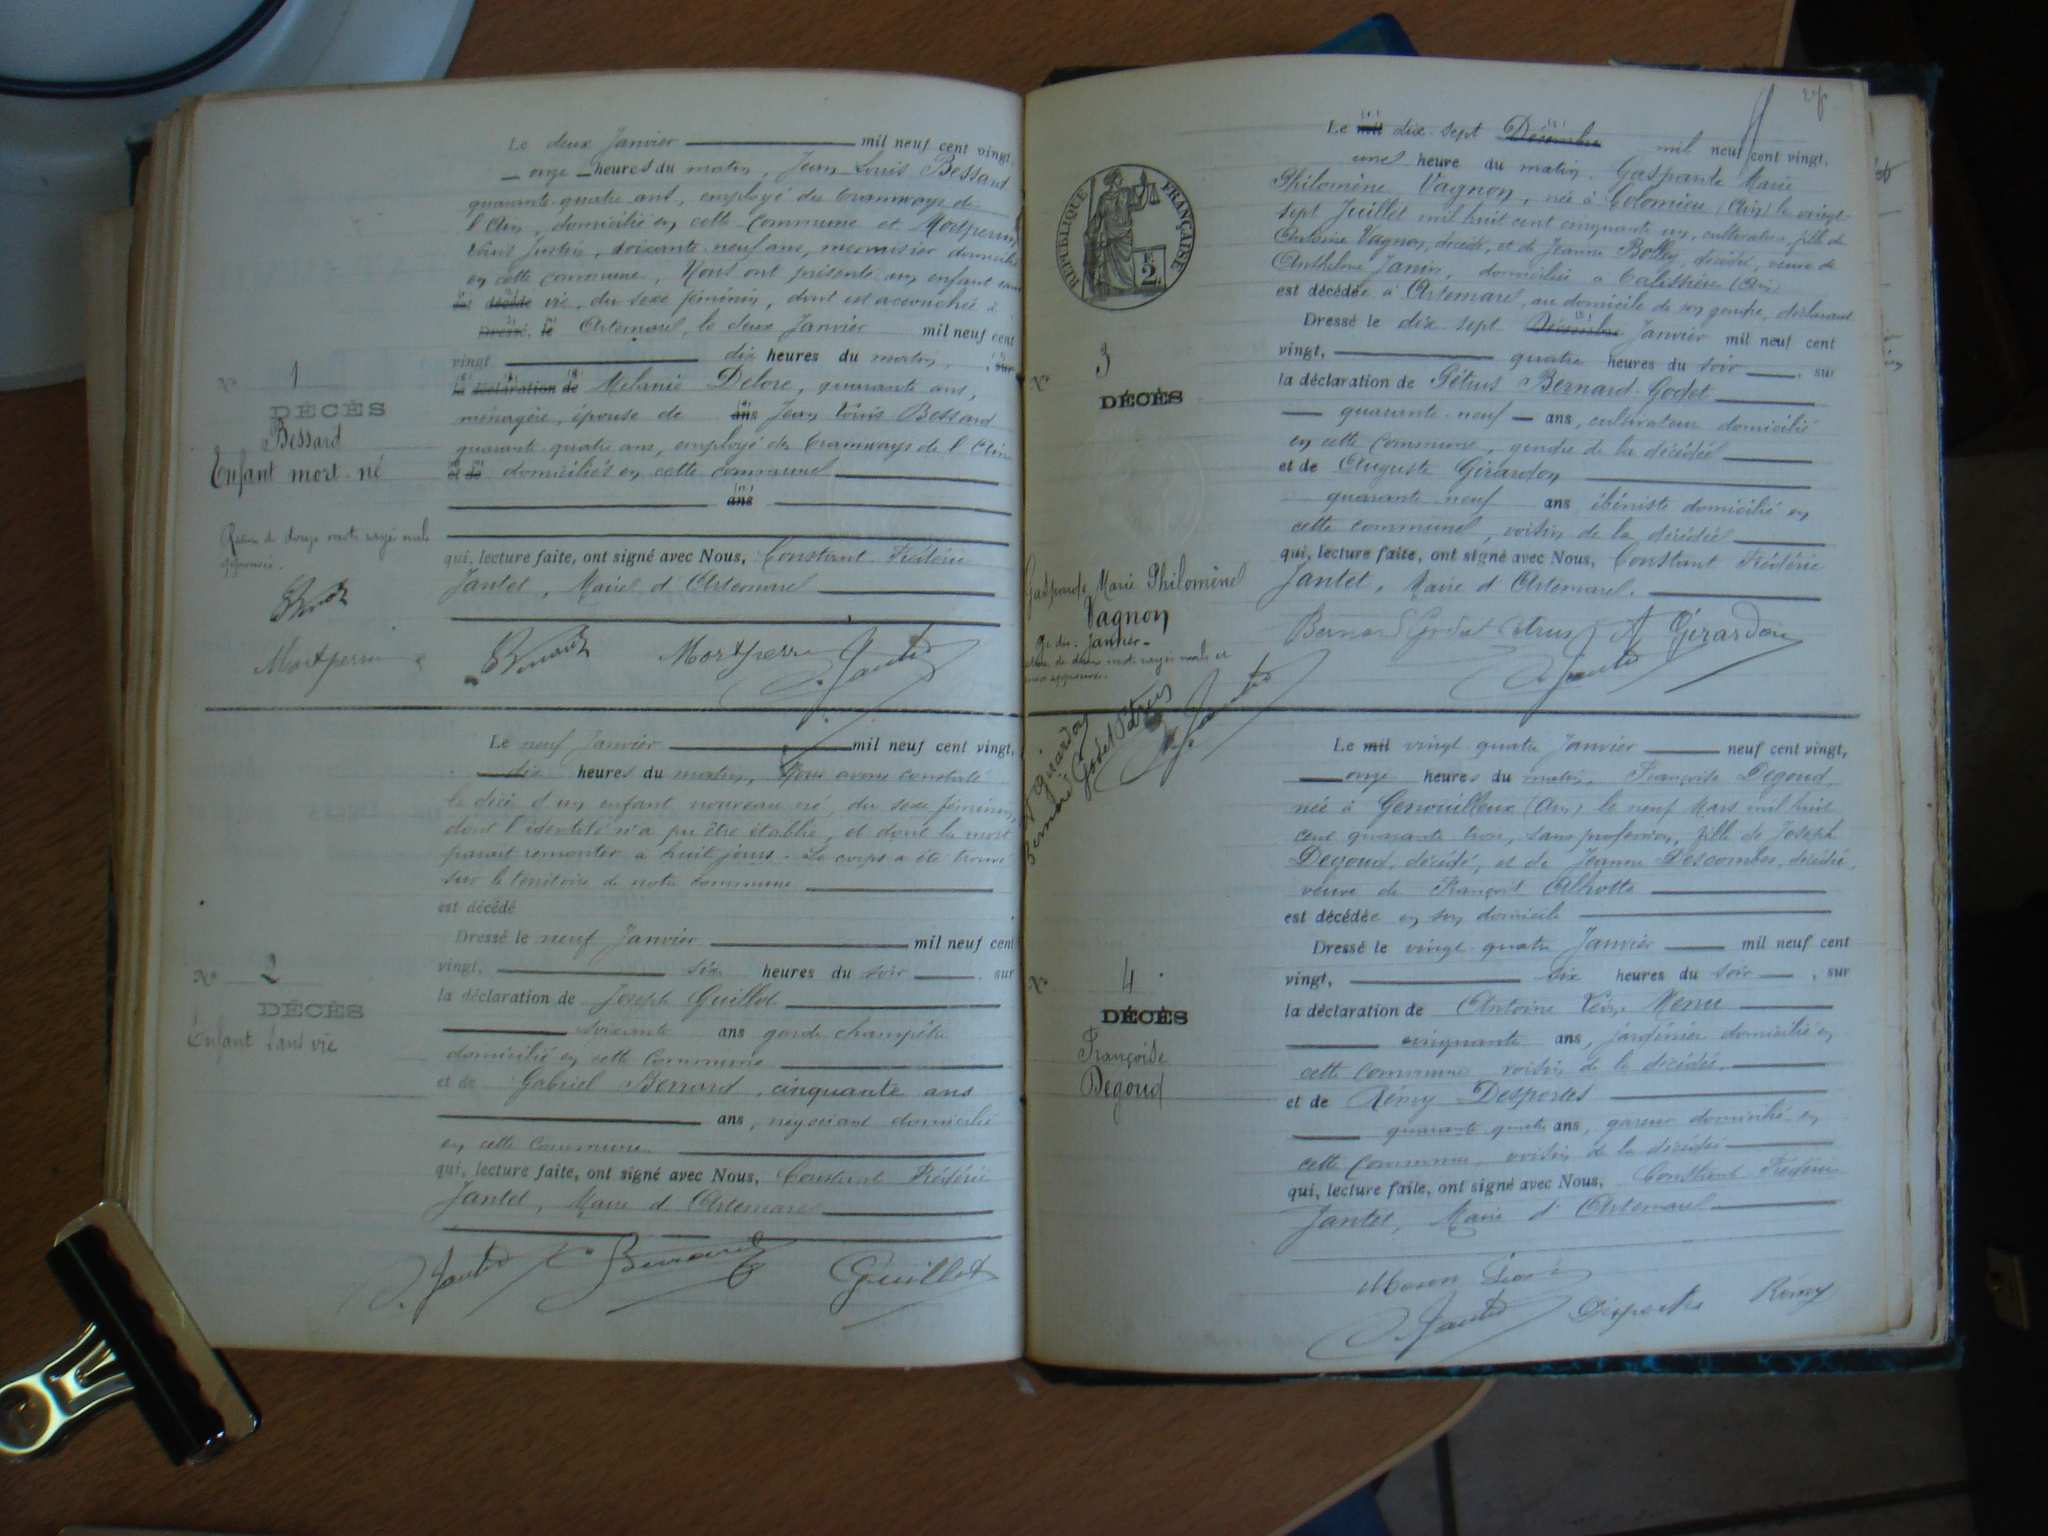 Le deux Janvier mil neuf cent vingt,
onze heures du matin, Jean Louis Bessard
quarante quatre ans, employé des tramways de
l'Ain, domicilié en cette commune et Montperrin
Louis Justin, soixante neuf ans, menuisier domicilié
en cette commune, Nous ont présenté un enfant sans
vie, du sexe féminin, dont est accouchée à
Dressé, le Artemare, le deux Janvier mil neuf cent
vingt dix heures du matin, sur
la déclaration de Mélanie Delore, quarante ans,
ménagère, épouse de ans Jean Louis Bessard
quarante quatre ans, employé des tramways de l'Ain
et de domiciliés en cette commune
ans
qui, lecture faite, ont signé avec Nous, Constant Frédéric
Jantet, Maire d'Artemare
N° 1
DÉCÈS
Bessard
Enfant mort-né
Montperrin
Montperrin Jantet
Le neuf Janvier mil neuf cent vingt,
dix heures du matin, Nous avons constaté
le décès d'un enfant nouveau né, du sexe féminin,
dont l'identité n'a pu être établie, et dont la mort
parait remonter à huit jours. Le corps a été trouvé
sur le territoire de notre commune
est décédé
Dressé le neuf Janvier mil neuf cent
vingt, six heures du soir, sur
la déclaration de Joseph Guillot
soixante ans garde champêtre
domicilié en cette commune
et de Gabriel Bernard, cinquante ans
ans, négociant domicilié
en cette commune
qui, lecture faite, ont signé avec Nous, Constant Frédéric
Jantet, Maire d'Artemare
N° 2
DÉCÈS
Enfant sans vie
Jantet Guillot
Le mil dix sept Décembre mil neuf cent vingt,
une heure du matin, Gasparde Marie
Philomène Vagnon, née à Colomieu (Ain) le vingt
sept Juillet mil huit cent cinquante un, cultivatrice, fille de
Antoine Vagnon, décédé, et de Jeanne décédée, veuve de
Anthelme Janin, domiciliée à Talissieu (Ain)
est décédée à Artemare, au domicile de son gendre, déclarant
Dressé le dix sept Décembre Janvier mil neuf cent
vingt, quatre heures du soir, sur
la déclaration de Pétrus Bernard-Godet
quarante neuf ans, cultivateur domicilié
en cette commune, gendre de la décédée
et de Auguste Girardon
quarante neuf ans ébéniste domicilié en
cette commune, voisin de la décédée
qui, lecture faite, ont signé avec Nous, Constant Frédéric
Jantet, Maire d'Artemare.
RÉPUBLIQUE FRANÇAISE
2
N° 3
DÉCÈS
Gasparde Marie Philomène
Vagnon
Bernard Godet Pétrus A Girardon
Jantet
A Girardon
Bernard Godet Pétrus
Jantet
Le mil vingt quatre Janvier neuf cent vingt,
onze heures du matin, Françoise Degoud
née à Genouilleux (Ain) le neuf Mars mil huit
cent quarante trois, sans profession, fille de Joseph
Degoud, décédé, et de Jeanne Descombes, décédée,
veuve de François
est décédée en son domicile
Dressé le vingt quatre Janvier mil neuf cent
vingt, six heures du soir, sur
la déclaration de Antoine Léon
cinquante ans, jardinier domicilié en
cette commune voisin de la décédée,
et de Rémy Desportes
quarante quatre ans, domicilié en
cette commune, voisin de la décédée
qui, lecture faite, ont signé avec Nous, Constant Frédéric
Jantet, Maire d'Artemare
N° 4
DÉCÈS
Françoise
Degoud
Jantet Desportes Rémy